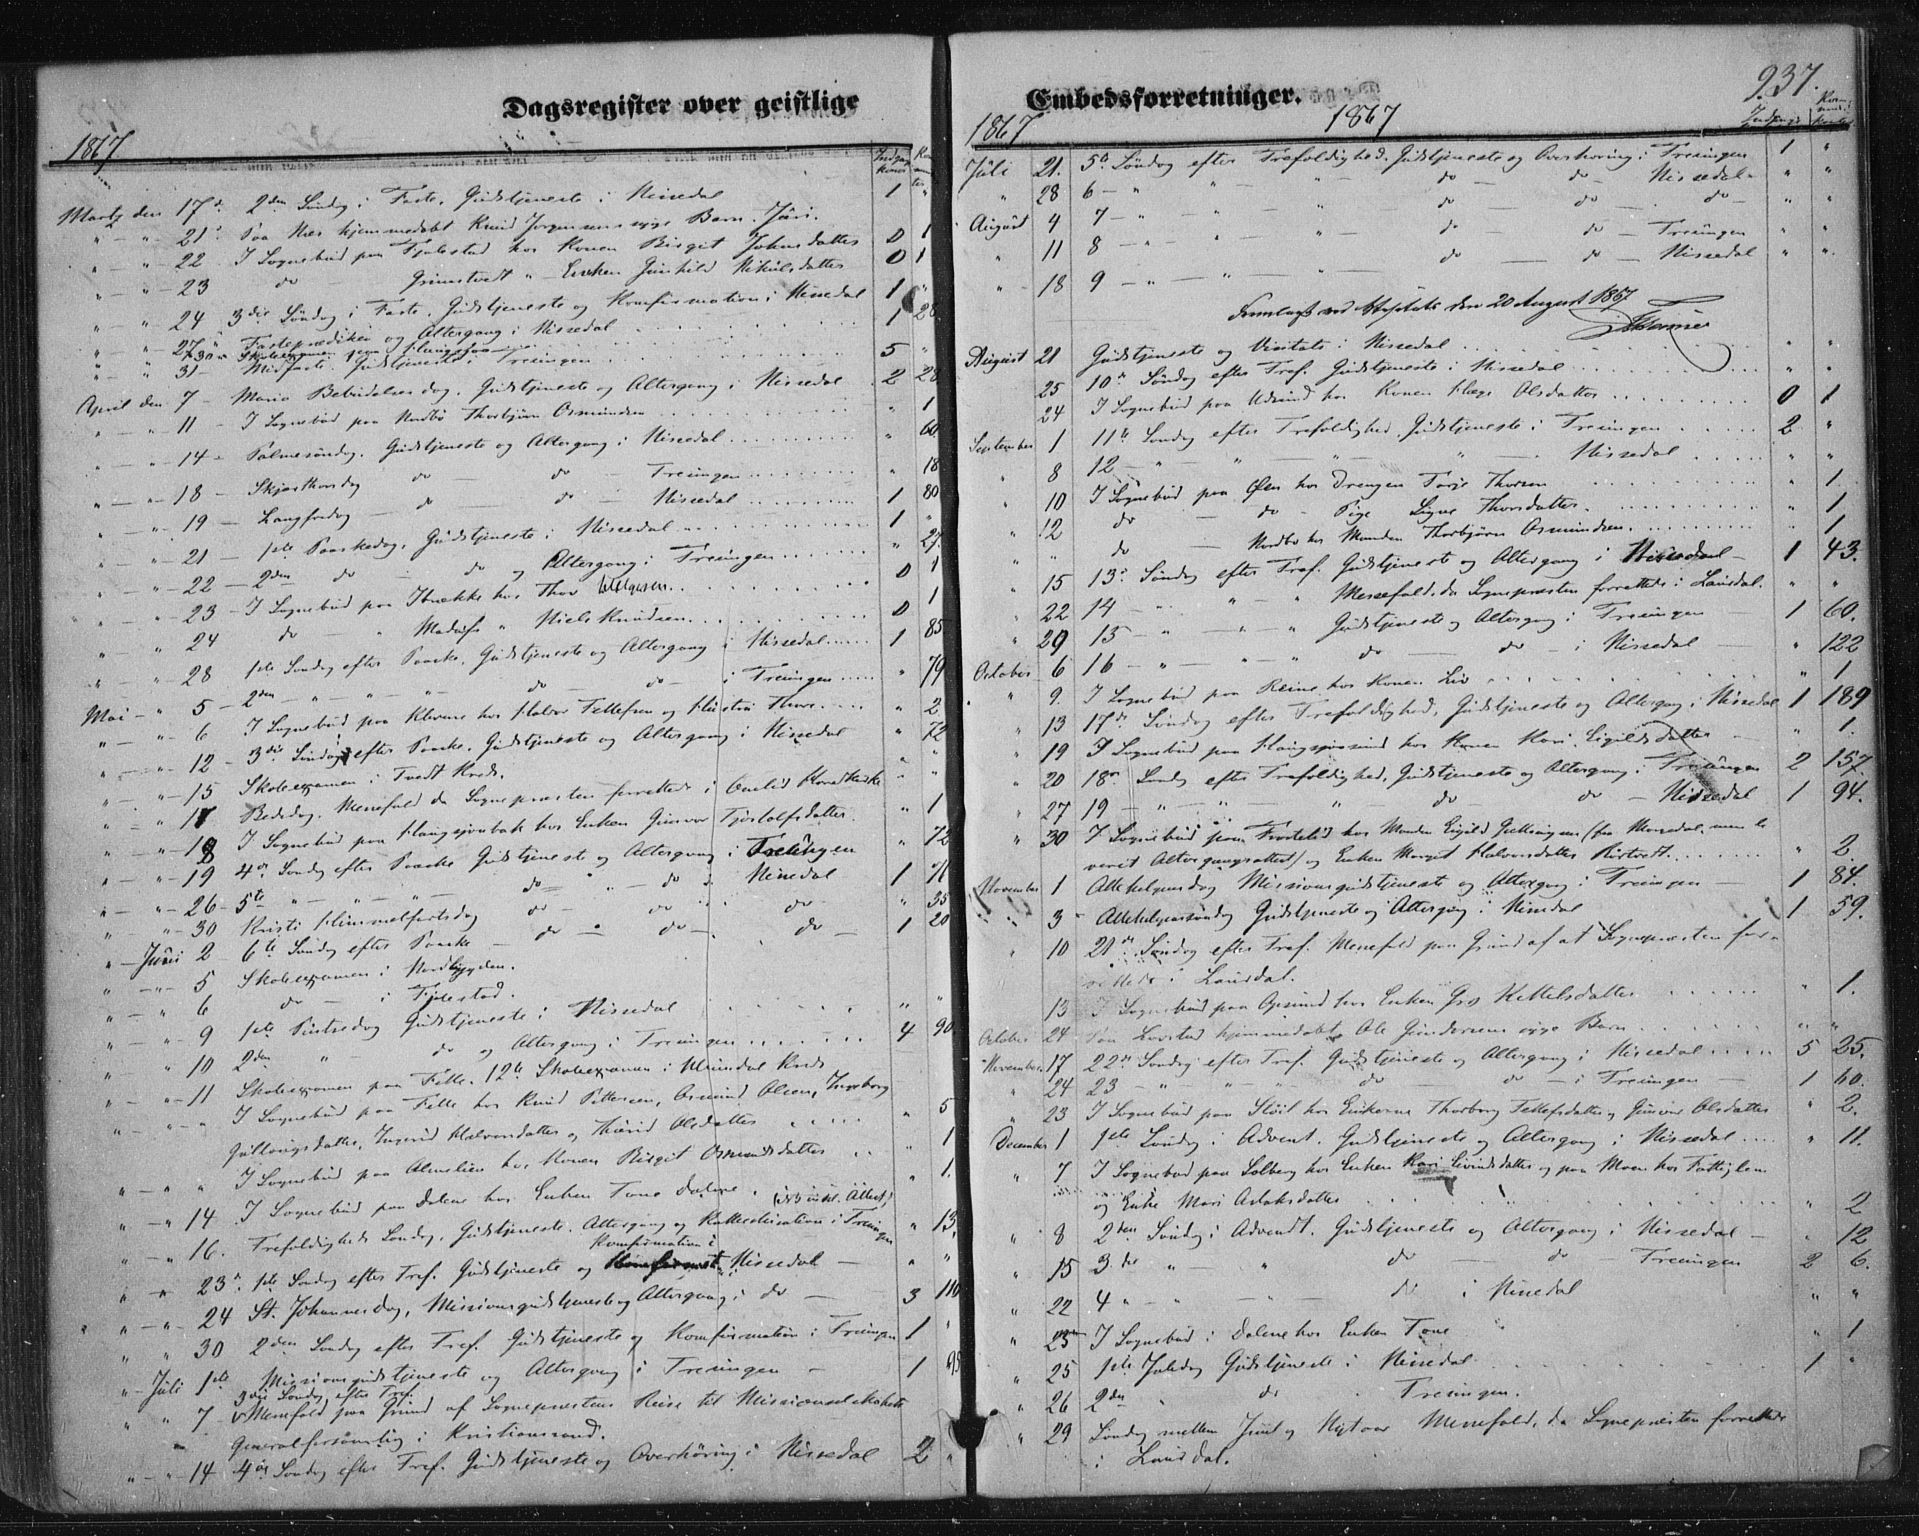 Dagsregister over geistlige
1867.
Indgangskoner Kommunikanter
Martz den 17 d. 2den Søndag i Faste, Gudstjeneste i Nissedal 1 "
" - " 21 " Paa Næs hjemmedøbt Knud Jørgensens syge Barn Jùri.
" - " 22 I Sognebud paa Fjalestad hos Konen Birgit Johnsdatter 0 1
" - " 23 do Grimstvedt " Enken Gunhild Nikulsdatter 0 1
" - " 24 3die Søndag i Faste, Gudstjeneste og Konfirmation i Nissedal 1 "
" - " 27 " Fasteprædiken og Altergang i Nissedal 1 28
" - " 30 " Skoleexamen
" - " 31 - Midfaste. Gudstjeneste i Treungen 5 "
April den 7 - Maria Bebudelses dag, Gudstjeneste og Altergang i Nissedal 2 28
" - " 11 - I Sognebud paa Nordbø Thorbjørn Osmundsen " 1
" - " 14 - Palmesøndag. Gudstjeneste og Altergang i Nissedal " 60
" - " 18 - Skjærthorsdag do do - Treungen " 18
" - " 19 - Langfredag - do - do - Nissedal 1 80
" 21 - 1ste Paaskedag, Gudstjeneste i Nissedal 1 "
" - " 22 - 2den do - do og Altergang i Treungen " 27
" - " 23 - I Sognebud paa hos Thor 0 1
" - " 24 do " " Niels Knudsen 0 1
" - " 28 1ste Søndag efter Paaske, Gudstjeneste og Altergang i Nissedal 1 85
Mai - " 5 - 2den - " - " - do - do - i Treungen " 79
" - " 6 I Sognebud paa Klevene hos Halvor Tellefsen og Hustru Thore " 2
" - " 12 - 3die Søndag efter Paaske, Gudstjeneste og Altergang i Nissedal " 72
" - " 15 Skoleexamen i Tvedt Kreds. " "
" - " 17 Bededag, Messefald da Sognepræsten forrettede i Omlid Hovedkirke " "
" - " 18 I Sognebud paa Haugsjøenbak hos Enken Gunvor Tjostolfsdatter " 1
" - " 19 4de Søndag efter Paaske Gudstjeneste og Altergang i Treungen " 72
" - " 26 - 5te - " - " - do " - do i Nissedal 1 71
" - " 30 Kristi Himmelfartsdag do - do - do " 35
" - Juni 2 - 6te Søndag efter Paaske - do - do - do - 1 20
" - " 5 Skoleexamen i Nordbygden.
" - " 6 do - i Fjalestad.
" - " 9 1ste Pintsedag Gudstjeneste i Nissedal " "
" - " 10 2den " - do og Altergang i Treungen 4 90
" - " 11 Skoleexamen paa Felle. 12te Skoleexamen i Kreds
" - " " I Sognebud paa Felle hos Knud Pettersen, Osmund Olsen, Ingeborg
Gullaugsdatter, Ingerid Halvorsdatter og Thurid Olsdatter " 5
" " I Sognebud paa Almelien hos Konen Birgit Osmundsdatter " 1
" - " 14 I Sognebud paa Dalene hos Enken Tone Dalene " 1.
" - " 16. Trefoldigheds Søndag, Gudstjeneste, Altergang og Katechisation i Treungen " 13
" " 23 " 1ste Søndag efter Tref. Gudstjeneste og Konfirmation i Nissedal - " "
" - " 24 St. Johannesdag, Missionsgudstjeneste og Altergang i do - 3 110
" " 30 2den Søndag efter Tref. Gudstjeneste og Konfirmation i Treungen 1 "
" - Juli 1ste Missionsgudstjeneste og Altergang i Treungen - 1 95
3die Søndag efter Tref.
" " 7 Messefald paa Grund af Sognepræstens Reise til Missionsselskabets
Generalforsamling i Kristianssand.
" - " 14 4de Søndag efter Tref. Gudstjeneste og Overhøring i Nissedal 2 "
Embedsforretninger.
237.
1867 1867
Juli 21. 5te Søndag efter Trefoldighed. Gudstjeneste og Overhøring i Treungen 1 "
" 28 6 - " " " do - do - Nissedal " "
August 4 7 - " " - " do - do - do " "
" 11 8 - " - " " do - do - Treungen " "
" 18 9 - " - " do - do - Nissedal " "
Fremlagt ved Visitats den 20 August 1867
August 21 Gudstjeneste og Visitats i Nissedal " "
25 10de Søndag efter Tref. Gudstjeneste i Nissedal " "
24 I Sognebud paa Udsund hos Konen Hæge Olsdatter 0 1
September 1 11te Søndag efter Trefoldighed. Gudstjeneste i Treungen 2 "
" 8 12 - " - " - " - Nissedal " "
" 10 I Sognebud paa Øen hos Drengen Torje Thorsen " 1
" 12 do - do - Pige Signe Thorsdatter " 1
" do - Nordbø hos Manden Thorbjørn Osmundsen " 1
" 15 13de Søndag efter Tref. Gudstjeneste og Altergang i Nissedal - 1 43.
" 22 14 - " " - " Messefald, da Sognepræsten forrettede i Laurdal. " "
" 29 15 - " - " " Gudstjeneste og Altergang i Treungen - 1 60.
October 6 16 - " - " - " do - do - i Nissedal - " 122
" 9. I Sognebud paa Reine hos Konen Liv " 1
" 13 17de Søndag efter Trefoldighed, Gudstjeneste og Altergang i Nissedal 1 189
" 19 I Sognebud paa Haugsjøsund hos Konen Kari Eigildsdatter - " 1.
" 20 18de Søndag efter Trefoldighed, Gudstjeneste og Altergang i Treungen 2 157.
" 27 19 - " - " - " do - do - Nissedal 1 94.
" 30 I Sognebud paa hos Manden Eigild (fra men be
verit Altergangsattest) og Enken Margit Halvorsdatter " 2.
November 1 Allehelgensdag Missionsgudstjeneste og Altergang i Treungen 1 84.
" 3 - Allehelgenssøndag Gudstjeneste og Altergang i Nissedal 1 59.
" 10 21de Søndag efter Tref. Messefald paa Grund af at Sognepræsten for-
rettede i Laurdal.
13 I Sognebud paa Opsund hos Enken Gro Kittelsdatter " 1.
October 24 Paa Lovstad hjemmedøbt Ole Gundersens syge Barn " "
November 17 22de Søndag efter Tref. Gudstjeneste og Altergang i Nissedal 5 25.
" 24 23 - " " " " do do - i Treungen - 1 60.
" 23 I Sognebud paa Støil hos Enkerne Thorborg Tellefsdatter og Gunvor Olsdatter " 2.
December 1 1ste Søndag i Advent. Gudstjeneste og Altergang i Nissedal " 11.
" 7 I Sognebud paa Solberg hos Enken Kari Eivindsdatter og paa Moen hos Fattiglem
og Enke Mari Aslaksdatter " 2
" 8 2den Søndag i Advendt. Gudstjeneste og Altergang i Nissedal - " 12
" 15 3die " - " do - do Treungen 2 6.
" 22 4 " - " - " - do i Nissedal " "
" 23 I Sognebud i Dalene hos Enken Tone " 1
" 25 1ste Juledag Gudstjeneste i Nissedal 1 "
" 26 2den " do " Treungen.
" 29 Søndag mellem Juul og Nytaar Messefald, da Sognepræsten forrettede
i Laurdal.